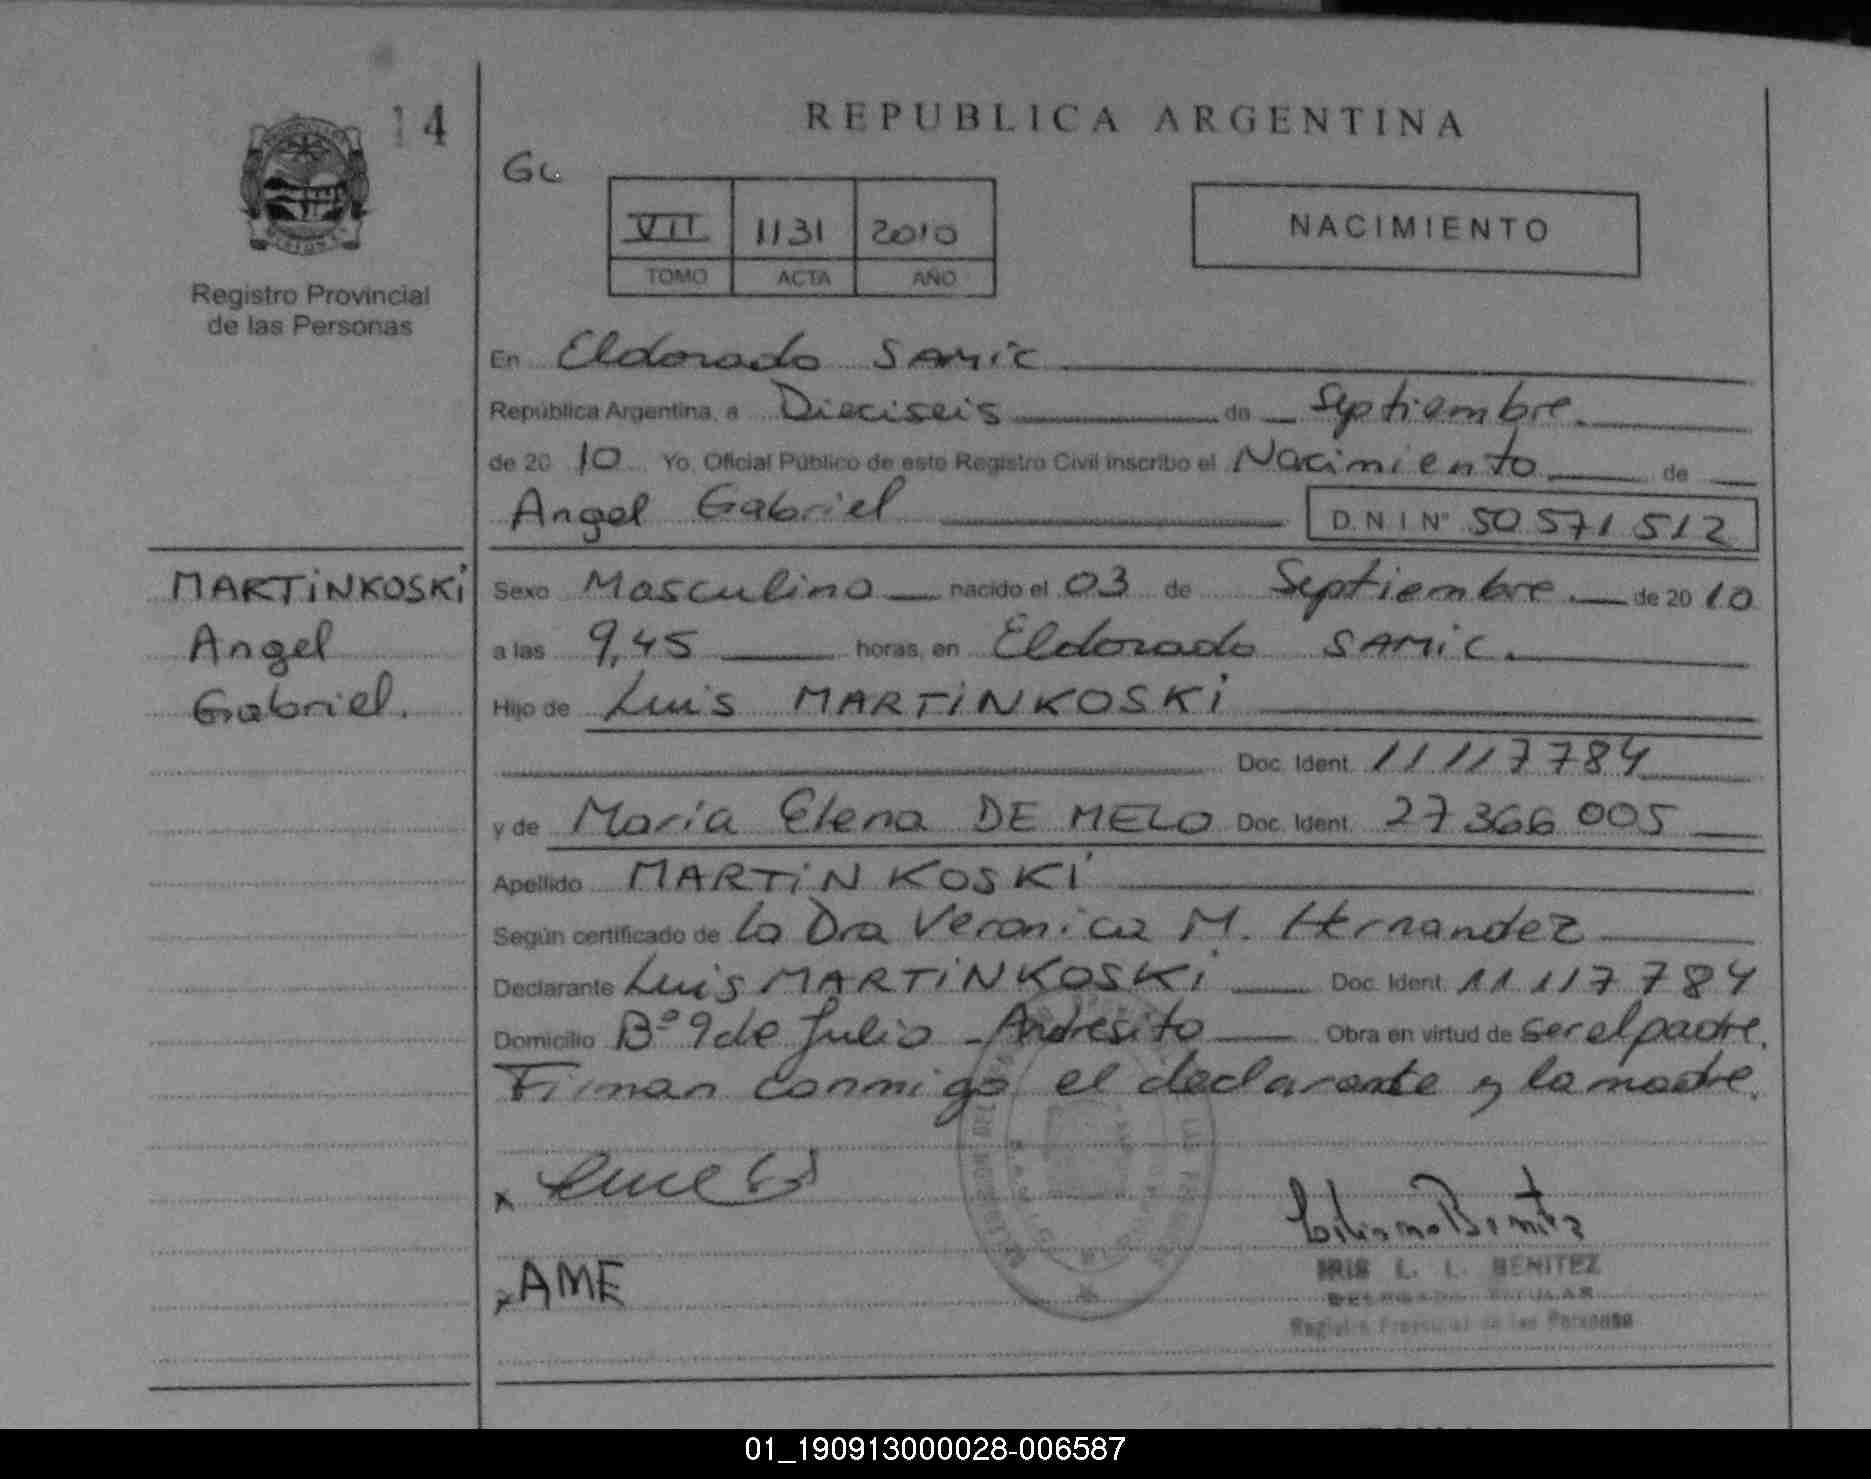 14
REPUBLICA ARGENTINA
GL
VII 1131 2010
TOMO ACTA AÑO
NACIMIENTO
Registro Provincial
de las Personas
En Eldorado SAMIC
República Argentina, a Dieciseis de Septiembre.
de 2010 Yo, Oficial Público de este Registro Civil inscribo el Nacimiento de
Angel Gabriel D.N.I Nº 50 571 512
MARTINKOSKI
Angel
Gabriel.
Sexo Masculino nacido el 03 de Septiembre. de 2010
a las 9,45 horas, en Eldorado SAMIC.
Hijo de Luis MARTINKOSKI
Doc. Ident. 11 117 784
y de Maria Elena DE MELO Doc. Ident. 27 366 005
Apellido MARTINKOSKI
Según certificado de la Dra Veronica M. Hernandez
Declarante Luis MARTINKOSKI Doc. Ident. 11 117 784
Domicilio Bº 9 de Julio - Andresito Obra en virtud de ser el padre.
Firman conmigo el declarante y la madre.
x
x AME
Liliana Benitez
IRIS L. L. BENITEZ
DELEGADA TITULAR
Registro Provincial de las Personas
01_190913000028-006587